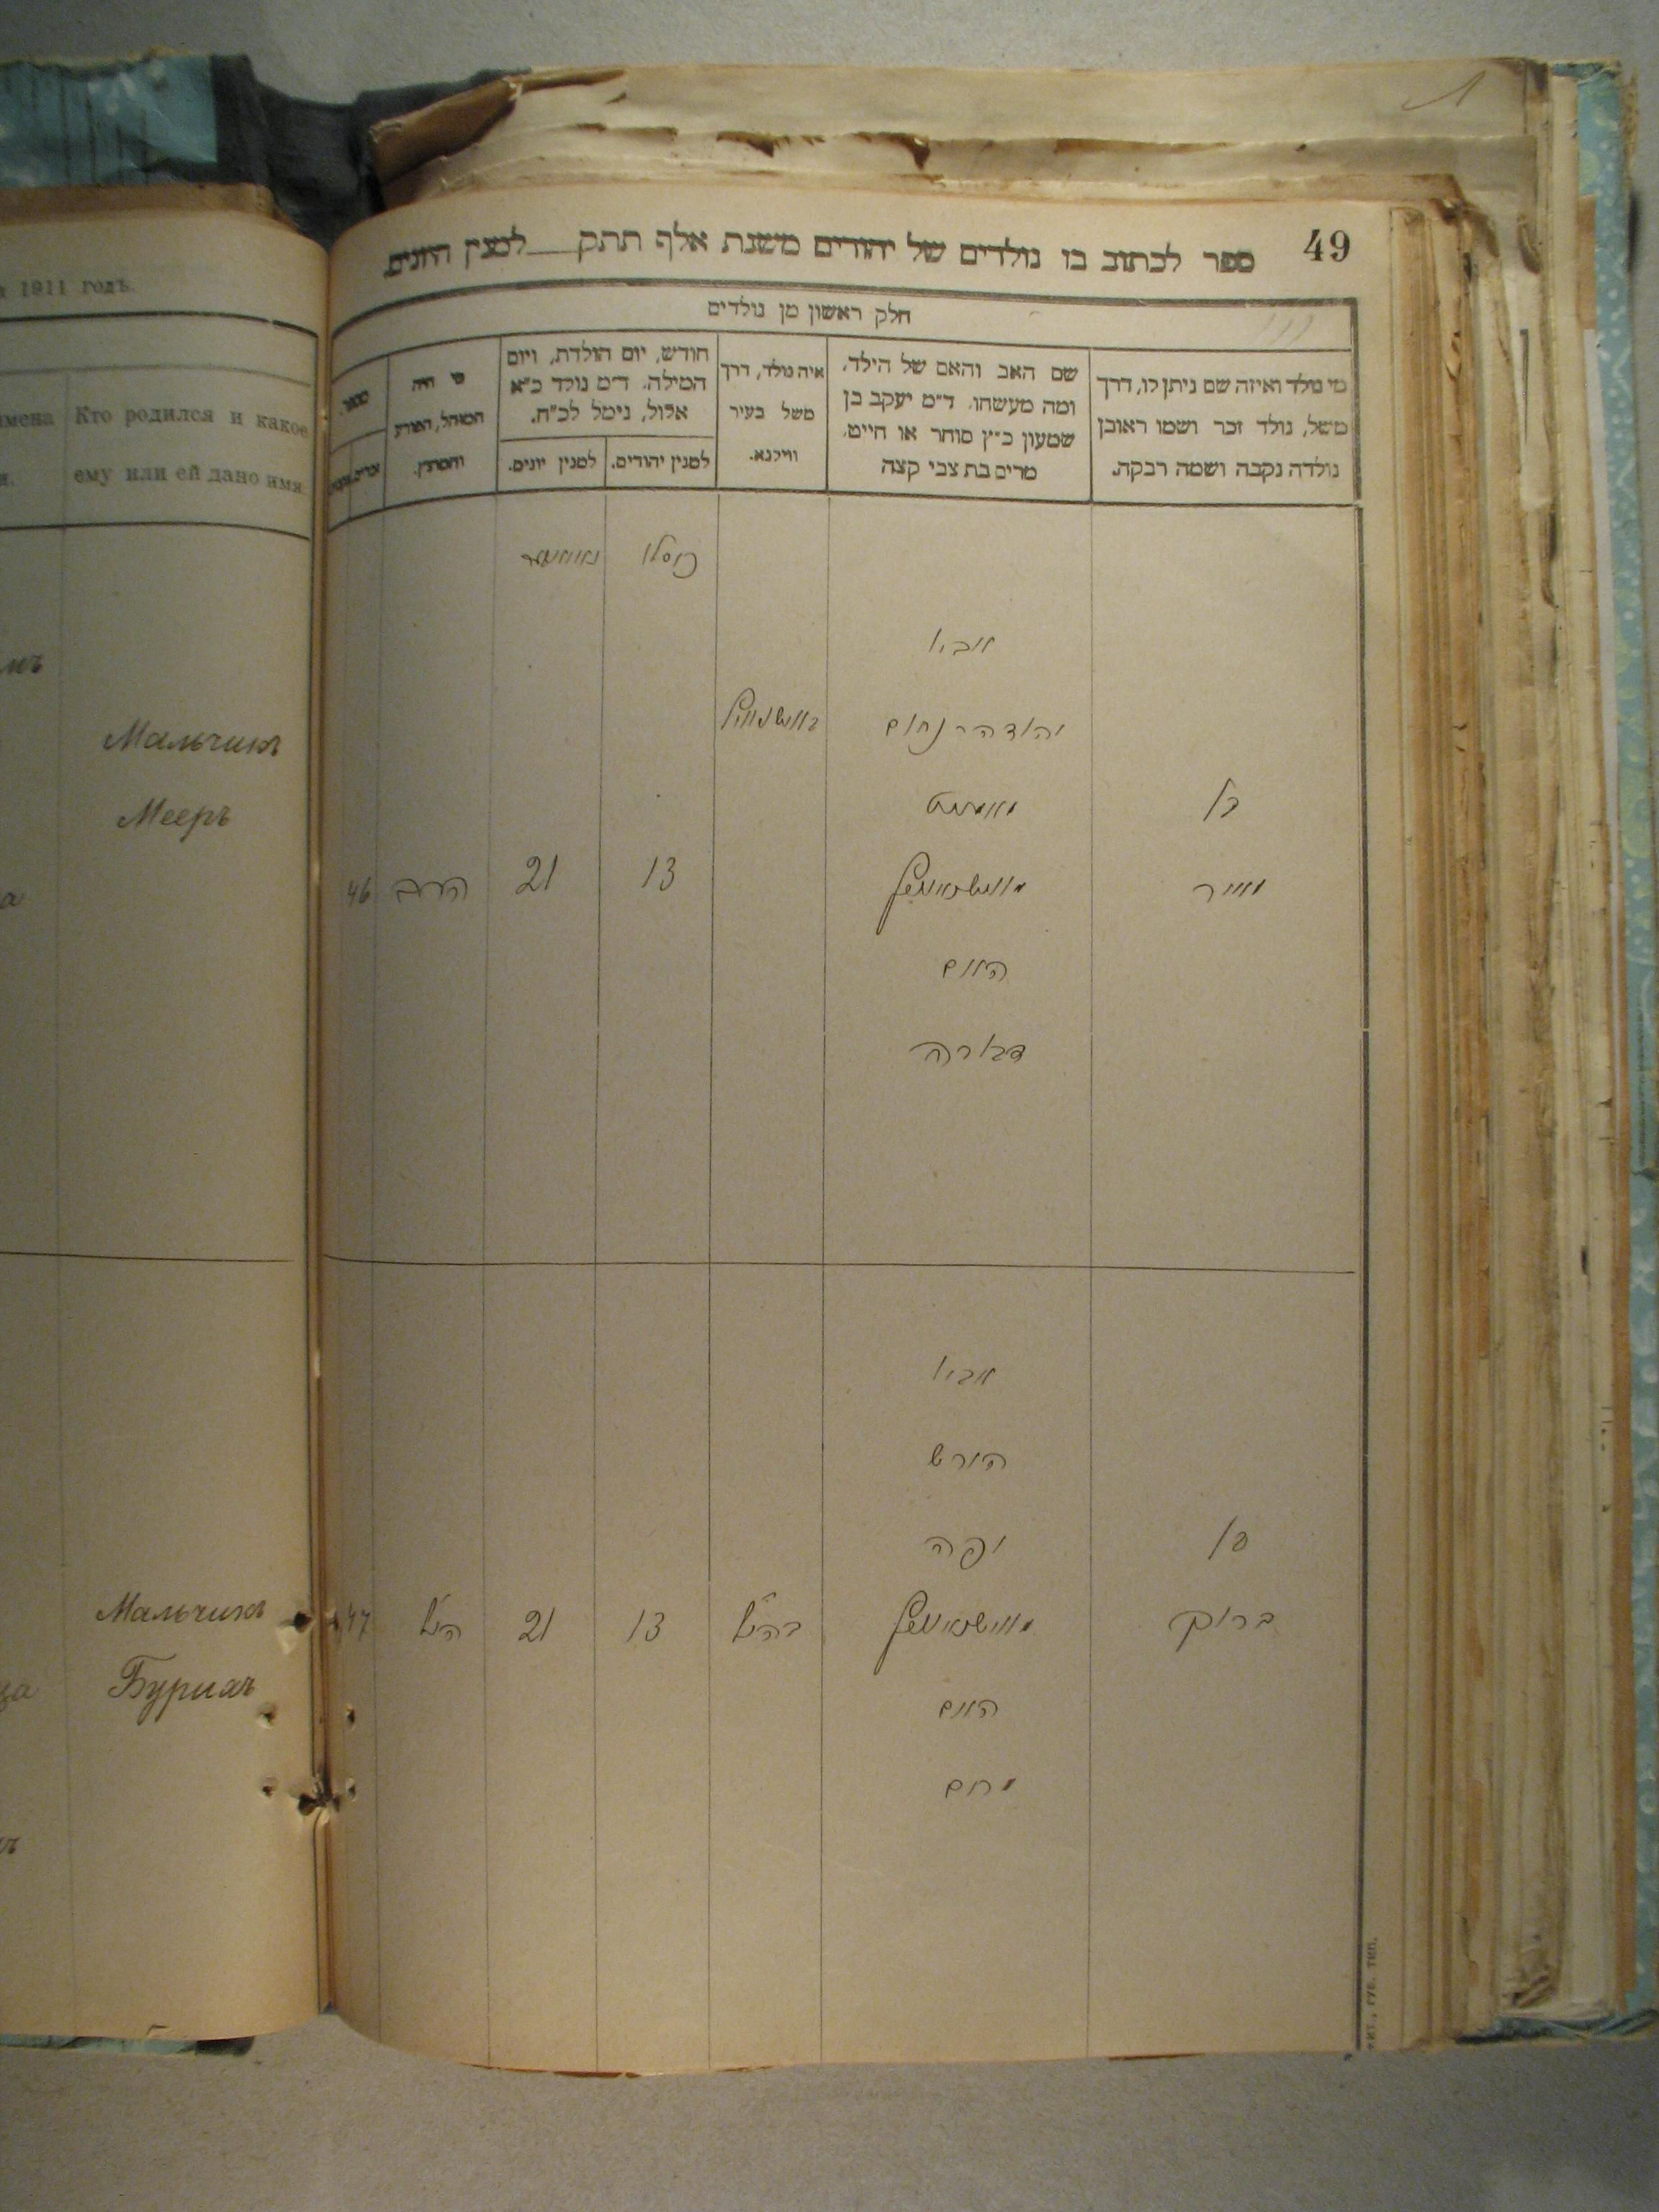 1911 годъ.
Кто родился и какое
ему или ей дано имя
Мальчикъ
Мееръ
Мальчикъ
Бурихъ
49
ספר לכתוב בו נולדים של יהודים משנת אלף תתק למנין היונים
חלק ראשון מן נולדים
מי נולד ואיזה שם ניתן לו, דרך
משל, נולד זכר ושמו ראובן
נולדה נקבה ושמה רבקה.
שם האב והאם של הילד,
ומה מעשהו. ד״מ יעקב בן
שמעון כ״ץ סוחר או חייט,
מרים בת צבי קצה
איה נולד, דרך
משל בעיר
ווילנא.
חודש, יום הולדת, ויום
המילה. ד״מ נולד כ״א
אלול, נימל לכ״ח.
למנין יהודים.
למנין יונים.
מי היה
המוהל, הפורע
והמוצץ.
מספר.
כסלו
אביו
יהודה נחום
בן
מאיר
13
21
הרב
46
האם
דבורה
אביו
הירש
יפה
בן
ברוך
בהנ״ל
13
21
הנ״ל
47
האם
מרים